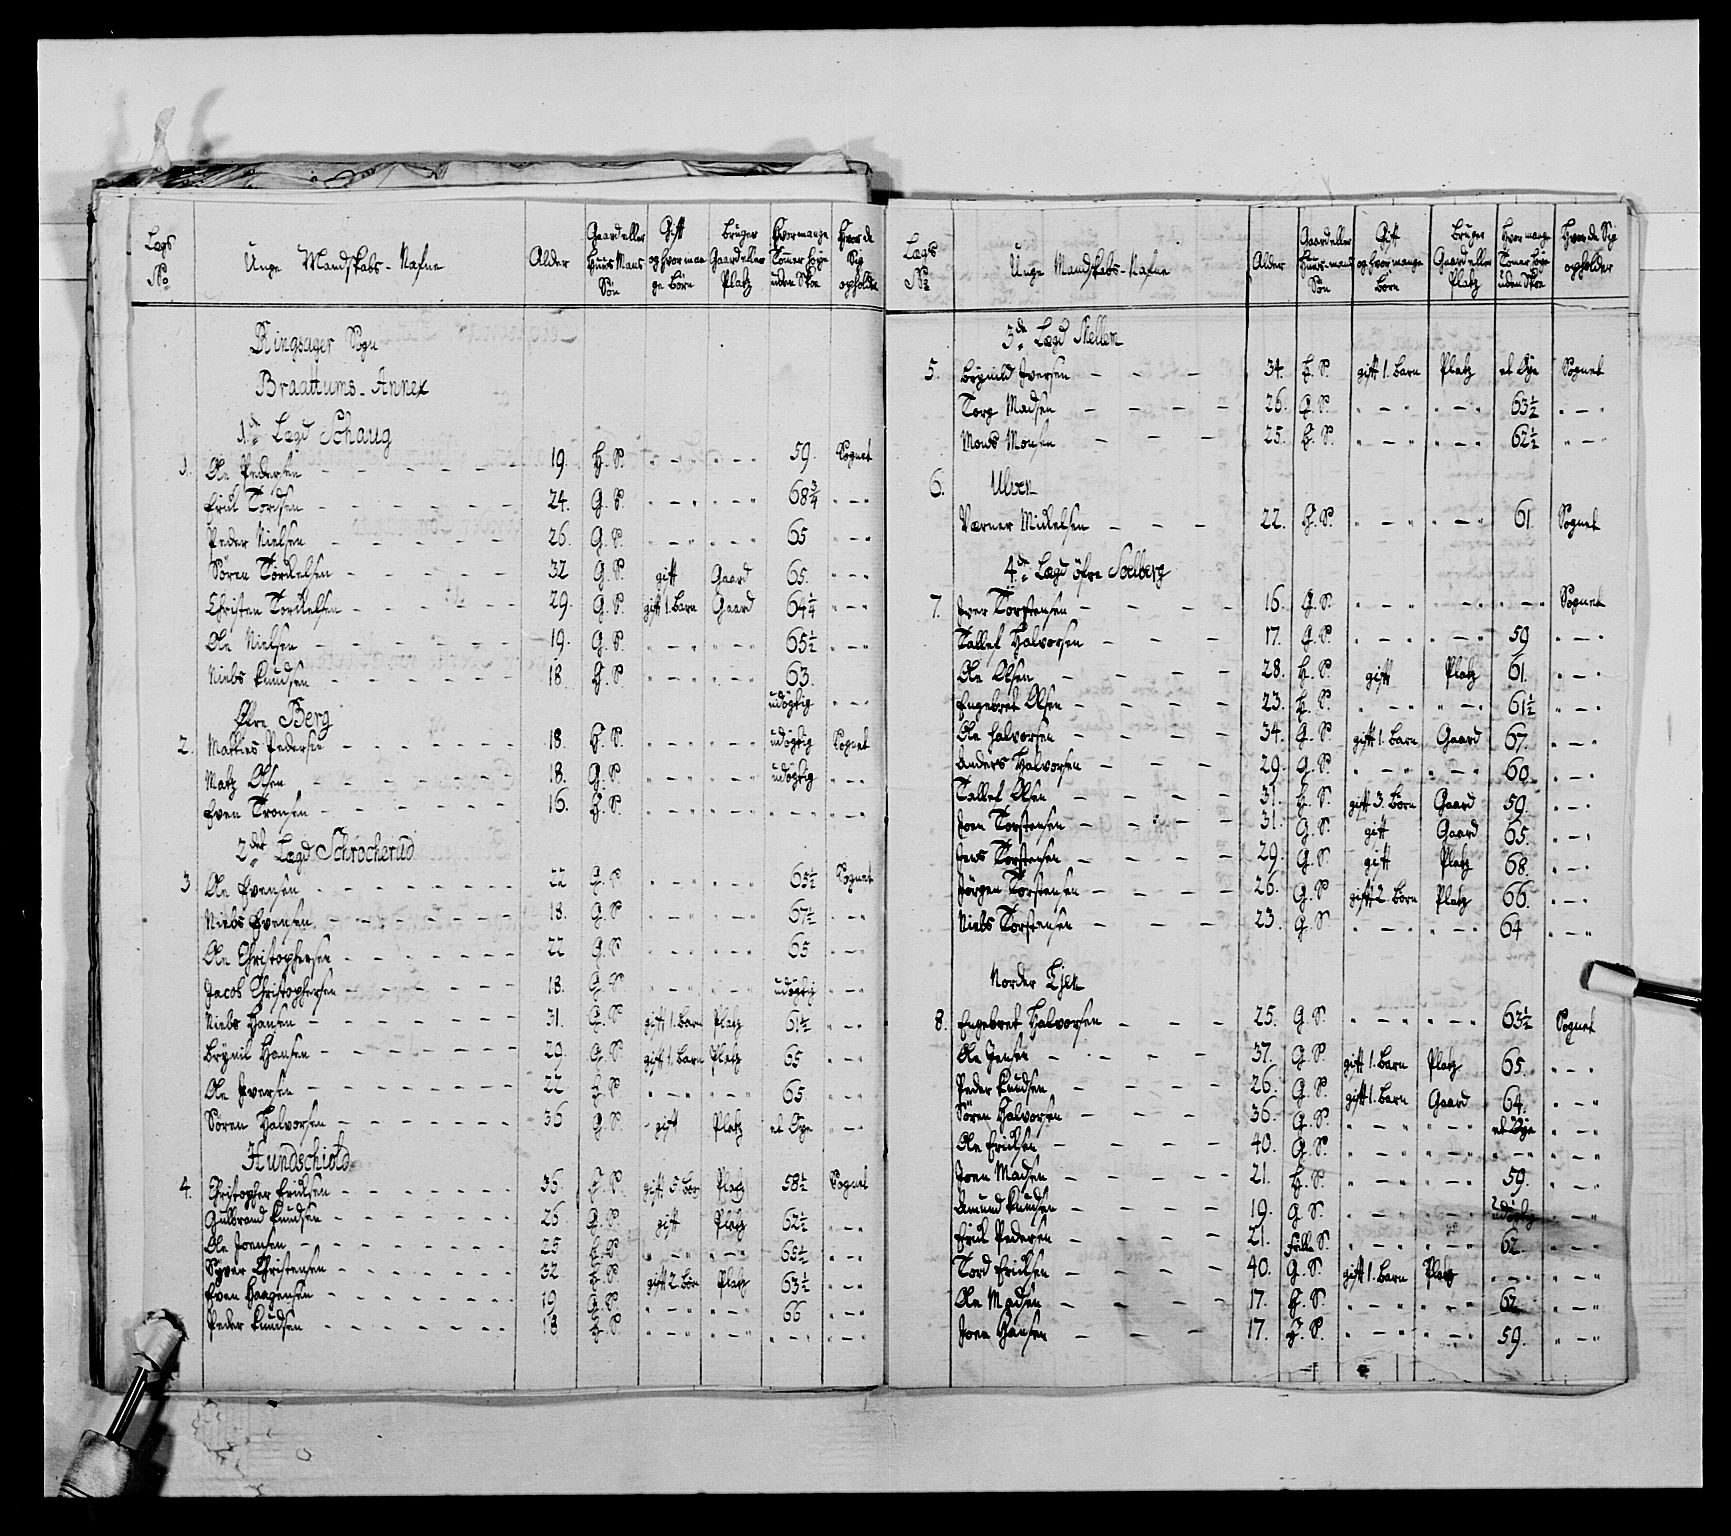 Lægs No | Unge Mandskabs-Nafne | Alder | Gaard eller Huus Mans Søn | Gift og hvor mange börn | Bruger Gaard eller Platz | Hvor mange Tomer høye uden Skoe | Hvor de Sig opholder
Ringsager Sogn
Braattums-Annex
1de Lægd Schaug
1. Ole Pedersen 19. H. S. " - " " - " 59. Sognet
Eriul Tordsen 24. G. S. " - " " - " 68 3/4 " - "
Peder Nielsen 26. G. S. " - " " - " 65 " - "
Sören Torckelsen 32 G. S. gift Gaard 65. " - "
Christen Torckelsen 29. G. S. gift 1. Barn Gaard 64 1/4 " - "
Ole Nielsen 19. G. S. " - " " - " 65 1/2 " - "
Niels Knudsen 18. G. S. " - " " - " 63.
Øfre Berg udögtig " - "
2. Mathies Pedersen 18. H. S. " - " " - " udögtig Sognet
Matz Olsen 18. G. S. " - " " - " udögtig " - "
Even Tronsen 16. H. S. " - " " - " " - " " - "
2det Lægd Schrocherud
3 Ole Evensen 22 G. S. " - " " - " 65 1/2 Sognet
Niels Evensen 18. G. S. " - " " - " 67 1/2 " - "
Ole Christophersen 22 G. S. " - " " - " 65 " - "
Jacob Christophersen 18. G. S. " - " " - " udögtig " - "
Niels Hansen 31. G. S. gift 1. Barn Platz 61 1/2 " - "
Brynil Hansen 29. G. S. gift 1. Barn Platz 65 " - "
Ole Iversen 22 H. S. " - " " - " 65 " - "
Sören Halvorsen 36 G. S. gift Platz et Øye " - "
Hundschiold
4. Christopher Eriulsen 36. H. S. gift 5. Bør Platz 58 1/2 Sognet
Gulbrand Knudsen 26 G. S. gift Platz 62 1/2 " - "
Ole Joensen 25 H. S. " - " " - " 65 1/2 " - "
Syver Christensen 32 H. S. gift 2. Børn Platz 63 1/2 " - "
Even Haagensen 19 G. S. " - " " - " 66 " - "
Peder Knudsen 18 H. S. " - " " - " " - " " - "
Lægs No | Unge Mandskabs-Nafne | Alder | Gaard eller Huus-mans Søn | Gift og hvor mange börn | Bruger Gaard eller Platz | Hvor mange Tomer høye uden Skoe | Hvor de Sig opholder
3de Lægd Mellem
5. Brynild Iversen 34. H. S. gift 1. Barn Platz et Øye Sognet
Torg Madsen 26. G. S. " - " " - " 63 1/2 " - "
Mons Monsen 25. H. S. " - " " - " 62 1/2 " - "
6. Ulven
Verner Mickelsen 22. H. S. " - " " - " 61 Sognet
4de Lægd öfre Soelberg
7. Iver Torstensen 16. G. S. " - " " - " " - " Sognet
Tallef Halvorsen 17. G. S. " - " " - " 59 " - "
Ole Olsen 28. H. S. gift Platz 61. " - "
Engebret Olsen 23. H. S. " - " " - " 61 1/2 " - "
Ole Halvorsen 34. G. S. gift 1. Barn Gaard 67. " - "
Anders Halvorsen 29. G. S. " - " " - " 60 " - "
Tallef Olsen 31. H. S. gift 3. Børn Gaard 59. " - "
Joen Torstensen 31. G. S. gift Gaard 65. " - "
Jens Torstensen 29. G. S. gift Platz 68. " - "
Jörgen Torstensen 26. G. S. gift 2. Børn Platz 66. " - "
Niels Torstensen 23. G. S. " - " " - " 64 " - "
Norder Ejen
8. Engebret Halvorsen 25. G. S. " - " " - " 63 1/2 Sognet
Ole Jensen 37. G. S. gift 1. Barn Platz 65. " - "
Peder Knudsen 26. G. S. gift 1. Barn Gaard 64. " - "
Sören Halvorsen 36. G. S. " - " " - " et Øye " - "
Ole Ericksen 40. G. S. " - " " - " " - " " - "
Joen Madsen 21. H. S. " - " " - " 59. " - "
Amund Knudsen 19. G. S. " - " " - " udögtig " - "
Eriul Pedersen 21. Fille S. " - " " - " 62. " - "
Tord Ericksen 40. G. S. gift 1. Barn Platz " - " " - "
Ole Madsen 17. H. S. " - " " - " 62 " - "
Joen Hansen 17. H. S. " - " " - " 59. " - "